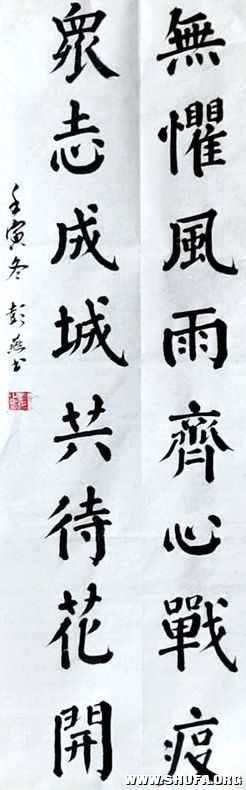 無懼風雨齊心戰疫
眾志成城共待花開
壬寅冬 彭燕书
WWW.SHUFA.ORG